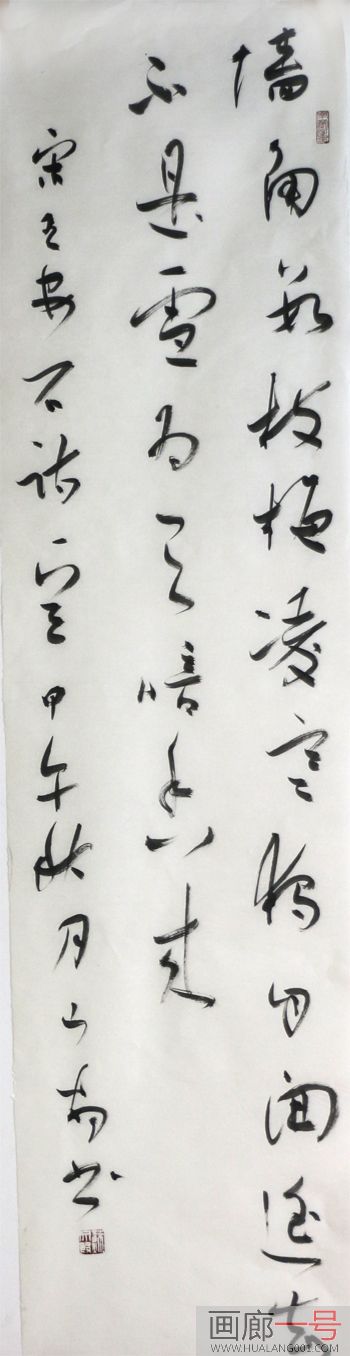 墙角数枝梅凌寒独自开遥知
不是雪为有暗香来
宋王安石诗甲午秋月书
画廊一号
WWW.HUALANG001.COM